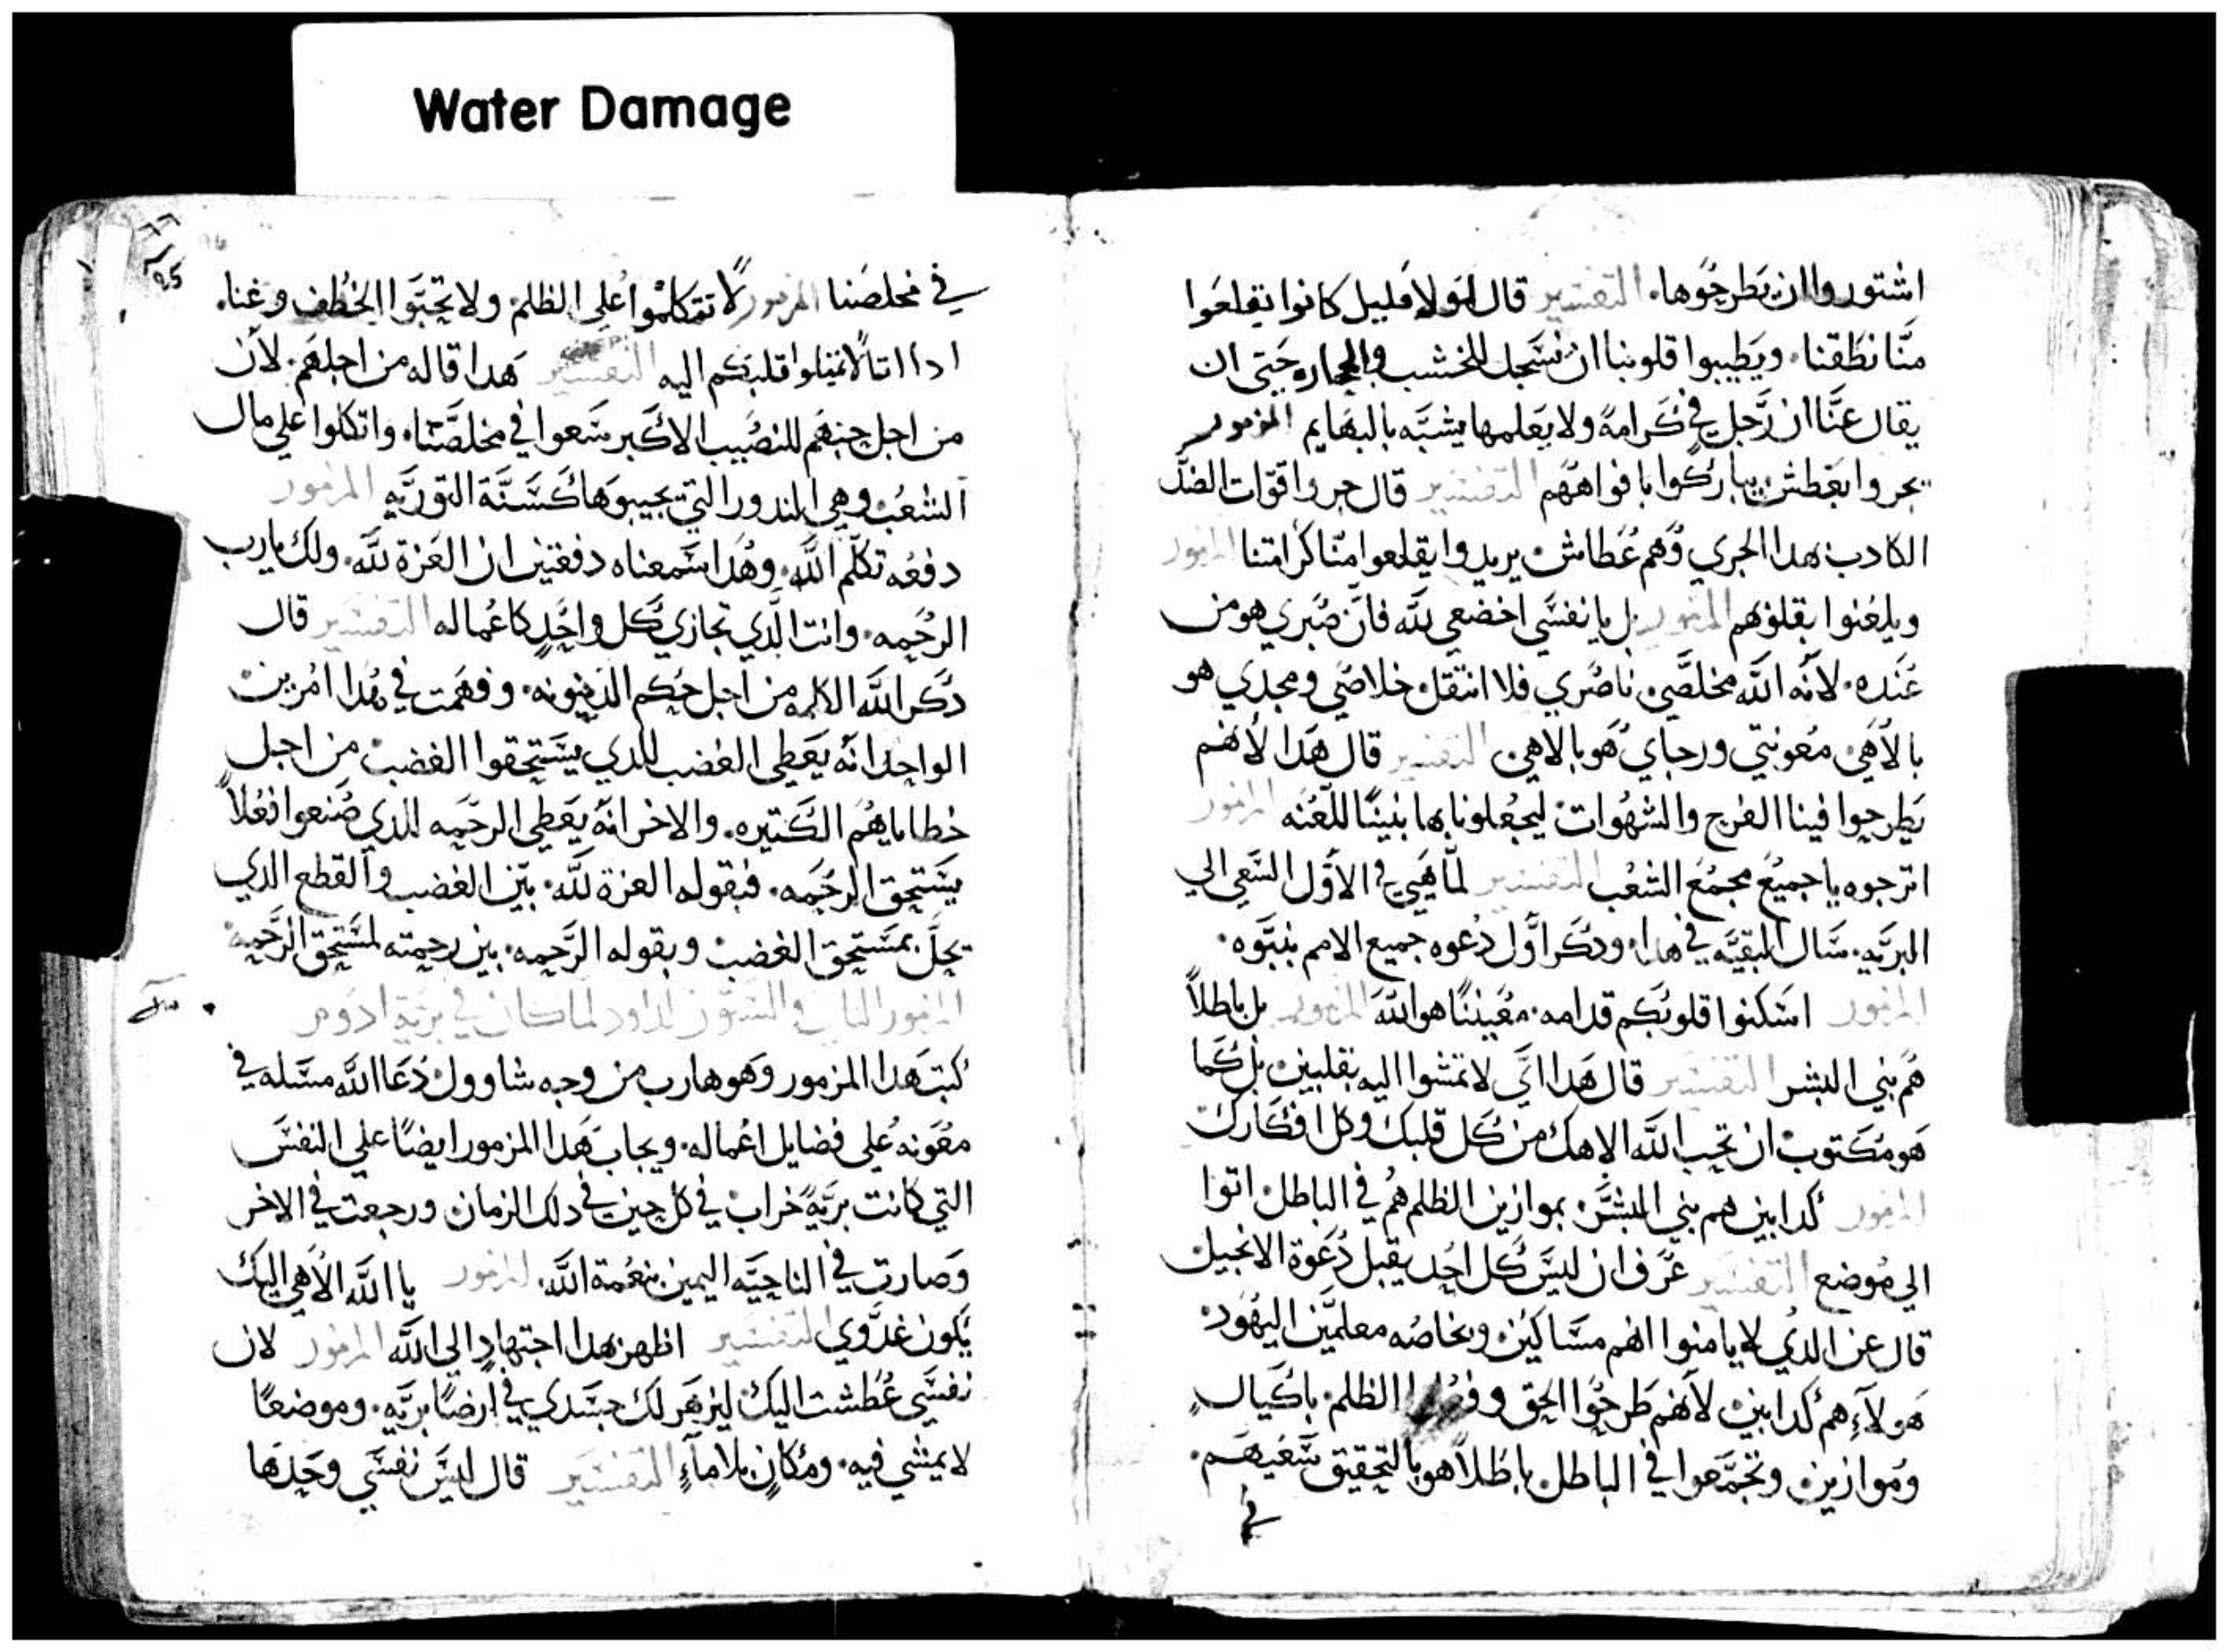 Water Damage
اشتوروا ان يطرحوها. التفسير قال لولا قليل كانوا يقلعوا
منا نطقنا. ويطيبوا قلوبنا ان نسجد للخشب والحجاره حتى ان
يقال عنا ان رجل في كرامة ولا يعلمها يشبه بالبهايم المزمور
يجروا بعطش يباركوا بافواههم التفسير قال جروا قوات الضد
الكادب هدا الجري وهم عطاش يريدوا يقلعوا منا كرامتنا المزمور
ويلعنوا بقلوبهم المزمور بل يا نفسي اخضعي لله فان صبري هو من
عنده. لانه الله مخلصي ناصري فلا انتقل خلاصي ومجدي هو
بالاهي معونتي ورجاي هو بالاهي التفسير قال هدا لانهم
يطرحوا فينا الفرح والشهوات ليجعلونا بها بنينا للعنه المزمور
اترجوه يا جميع مجمع الشعب التفسير لما هيي في الاول السعي الي
البريه. سال البقيه في هدا. ودكر اول دعوه جميع الامم بنبوه.
المزمور اسكنوا قلوبكم قدامه. معيننا هو الله المزمور بل باطلا
هم بني البشر التفسير قال هدا اني لا تمشوا اليه بقلبين بل كما
هو مكتوب ان تحب الله الاهك من كل قلبك وكل افكارك
المزمور كدابين هم بني البشر بموازين الظلم هم في الباطل اتوا
الي موضع التفسير عرف ان ليس كل احد يقبل دعوة الانجيل
قال عن الدي لا يامنوا انهم مساكين وبخاصه معلمين اليهود
هولاء هم كدابين لانهم طرحوا الحق الظلم باكيال
وموازين وتجمعوا في الباطل باطلا هو بالتحقيق سعيهم.
في
في مخلصنا المزمور لا تتكلموا علي الظلم ولا تحبوا الخطف وغنا.
ادا اتا لا تميلوا قلبكم اليه التفسير هدا قاله من اجلهم. لان
من اجل حبهم للنصيب الاكبر سعوا في مخلصنا. واتكلوا علي مال
الشعب وهي الندور التي يجيبوها كسنة التوريه المزمور
دفعه تكلم الله. وهدا سمعناه دفعتين ان العزة لله. ولك يا رب
الرحمه. وانت الدي تجازي كل واحد كاعماله التفسير قال
دكر الله الاله من اجل حكم الدينونه. وفهمت في هدا امرين
الواحد انه يعطي الغضب للدي يستحقوا الغضب من اجل
خطاياهم الكتيره. والاخر انه يعطي الرحمه للدي صنعوا فعلا
يستحق الرحمه. فبقوله العزة لله. بين الغضب والقطع الدي
يحل بمستحق الغضب وبقوله الرحمه. بين رحمته لمستحق الرحمه
المزمور التاني والستون لداود لما كان في برية ادوم
كتب هدا المزمور وهو هارب من وجه شاوول دعا الله مسله في
معونه علي فضايل اعماله. ويجاب هدا المزمور ايضا علي النفس
التي كانت برية خراب في كل حين في دلك الزمان ورجعت في الاخر
وصارت في الناحيه اليمين بنعمة الله. المزمور يا الله الاهي اليك
يكون غدوي التفسير اظهر هدا اجتهاد الي الله المزمور لان
نفسي عطشت اليك ليزهر لك جسدي في ارضا بريه. وموضعا
لا يمشي فيه. ومكان بلا ماء التفسير قال ليس نفسي وحدها